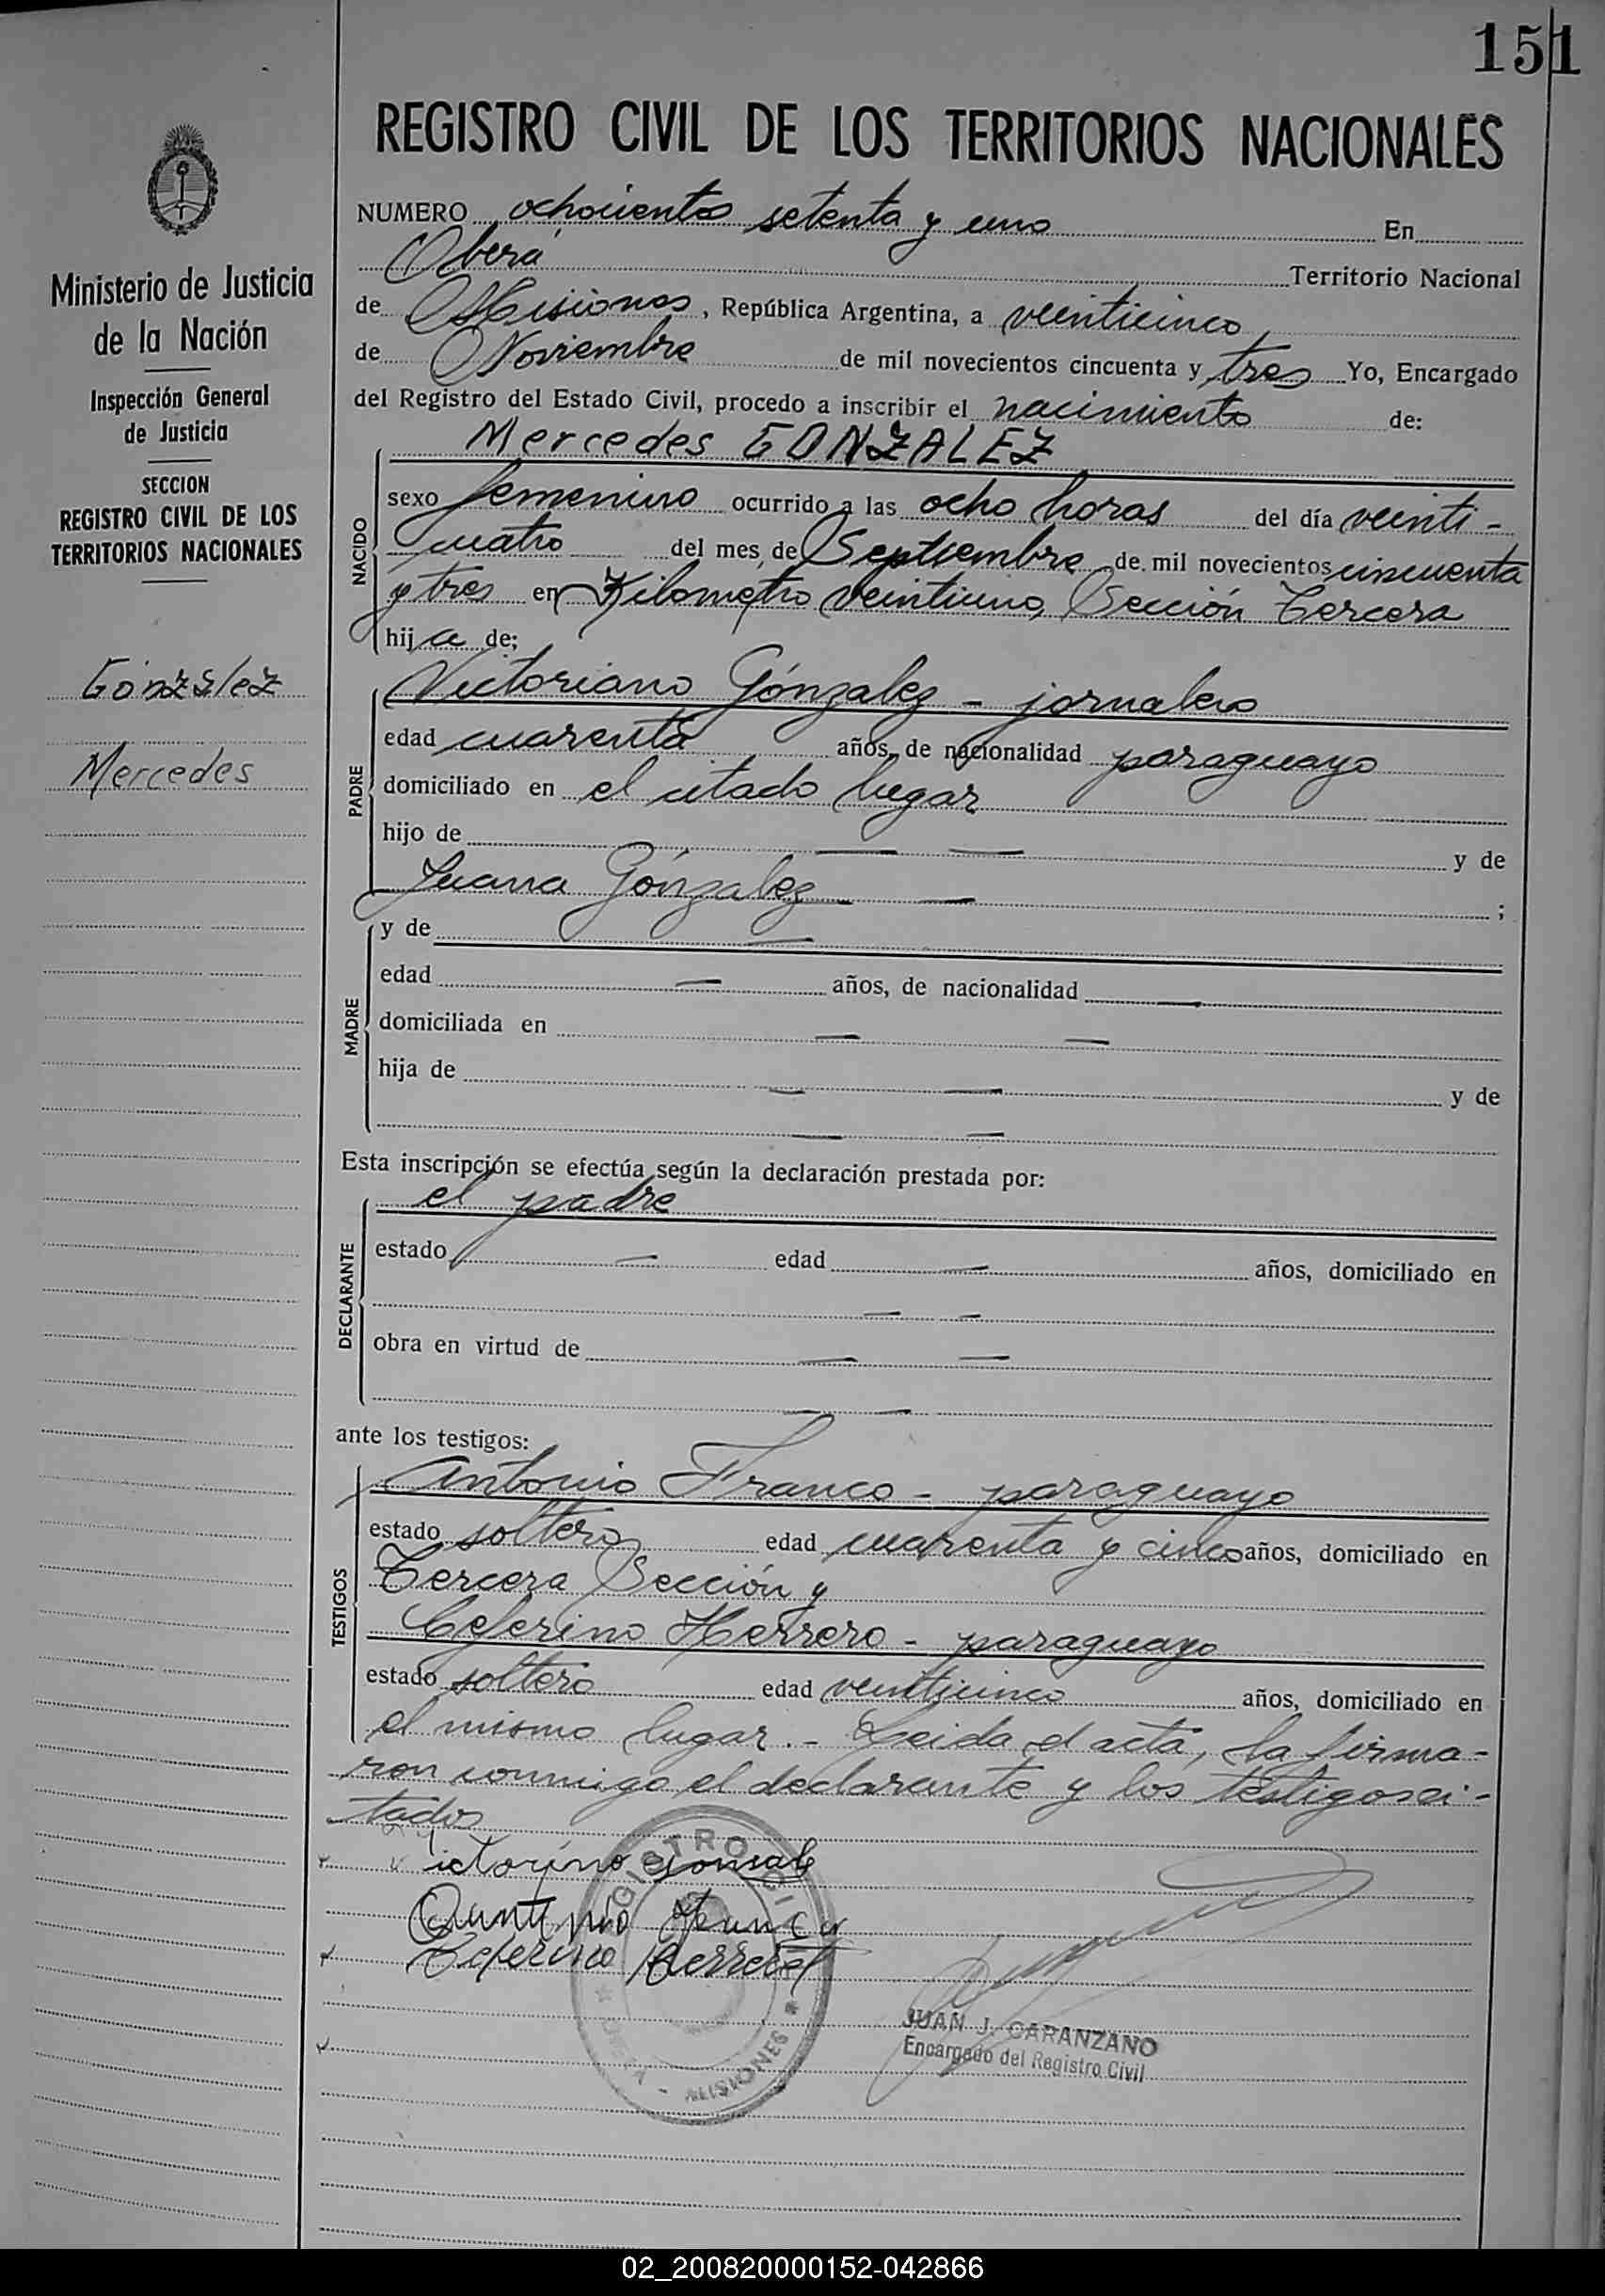 151
REGISTRO CIVIL DE LOS TERRITORIOS NACIONALES
Ministerio de Justicia
de la Nación
Inspección General
de Justicia
SECCION
REGISTRO CIVIL DE LOS
TERRITORIOS NACIONALES
Gónzález
Mercedes
NUMERO ochocientos setenta y uno En
Oberá Territorio Nacional
de Misiones, República Argentina, a veinticinco
de Noviembre de mil novecientos cincuenta y tres Yo, Encargado
del Registro del Estado Civil, procedo a inscribir el nacimiento de:
NACIDO
Mercedes GONZALEZ
sexo femenino ocurrido a las ocho horas del día veinti-
cuatro del mes de Septiembre de mil novecientos cincuenta
y tres en Kilometro veintiuno, Sección Tercera
hija de:
PADRE
Victoriano Gónzalez - jornalero
edad cuarenta años, de nacionalidad paraguayo
domiciliado en el citado lugar
hijo de — — y de
Juana Gónzalez — — ;
MADRE
y de —
edad — años, de nacionalidad —
domiciliada en — —
hija de — — y de
— —
Esta inscripción se efectúa según la declaración prestada por:
DECLARANTE
el padre
estado — edad — años, domiciliado en
— —
obra en virtud de — —
— —
ante los testigos:
TESTIGOS
Antonio Franco - paraguayo
estado soltero edad cuarenta y cinco años, domiciliado en
Tercera Sección y
Ceferino Herrero - paraguayo
estado soltero edad veinticinco años, domiciliado en
el mismo lugar.- Leida el acta, la firma-
ron conmigo el declarante y los testigos ci-
tados
Victorino Gonsale
Ceferino
REGISTRO CIVIL
MISIONES
JUAN J. CARANZANO
Encargado del Registro Civil
02_200820000152-042866